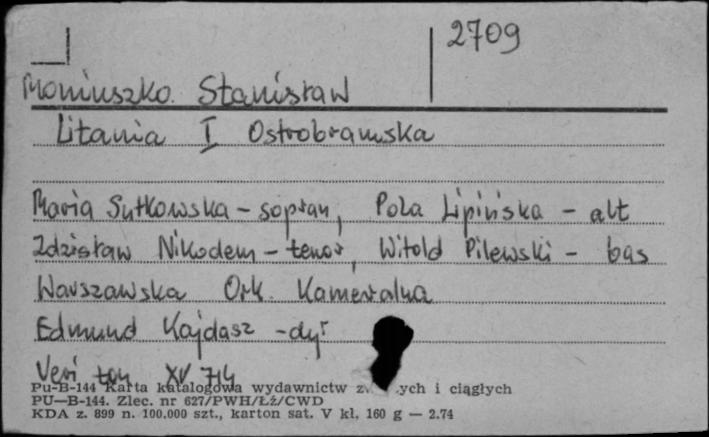 2709
Moniuszko. Stanisław
Litania I Ostrobramska
Maria Sutkowska - sopran, Pola Lipińska - alt
Zdzisław Nikodem - tenor, Witold Pilewski - bas
Warszawska Ork. Kameralna
Edmund Kajdasz - dyr
Veri ton XV 714
Pu-B-144 Karta katalogowa wydawnictw z ych i ciągłych
PU—B-144. Zlec. nr 627/PWH/Łż/CWD
KDA z. 899 n. 100.000 szt., karton sat. V kl. 160 g — 2.74